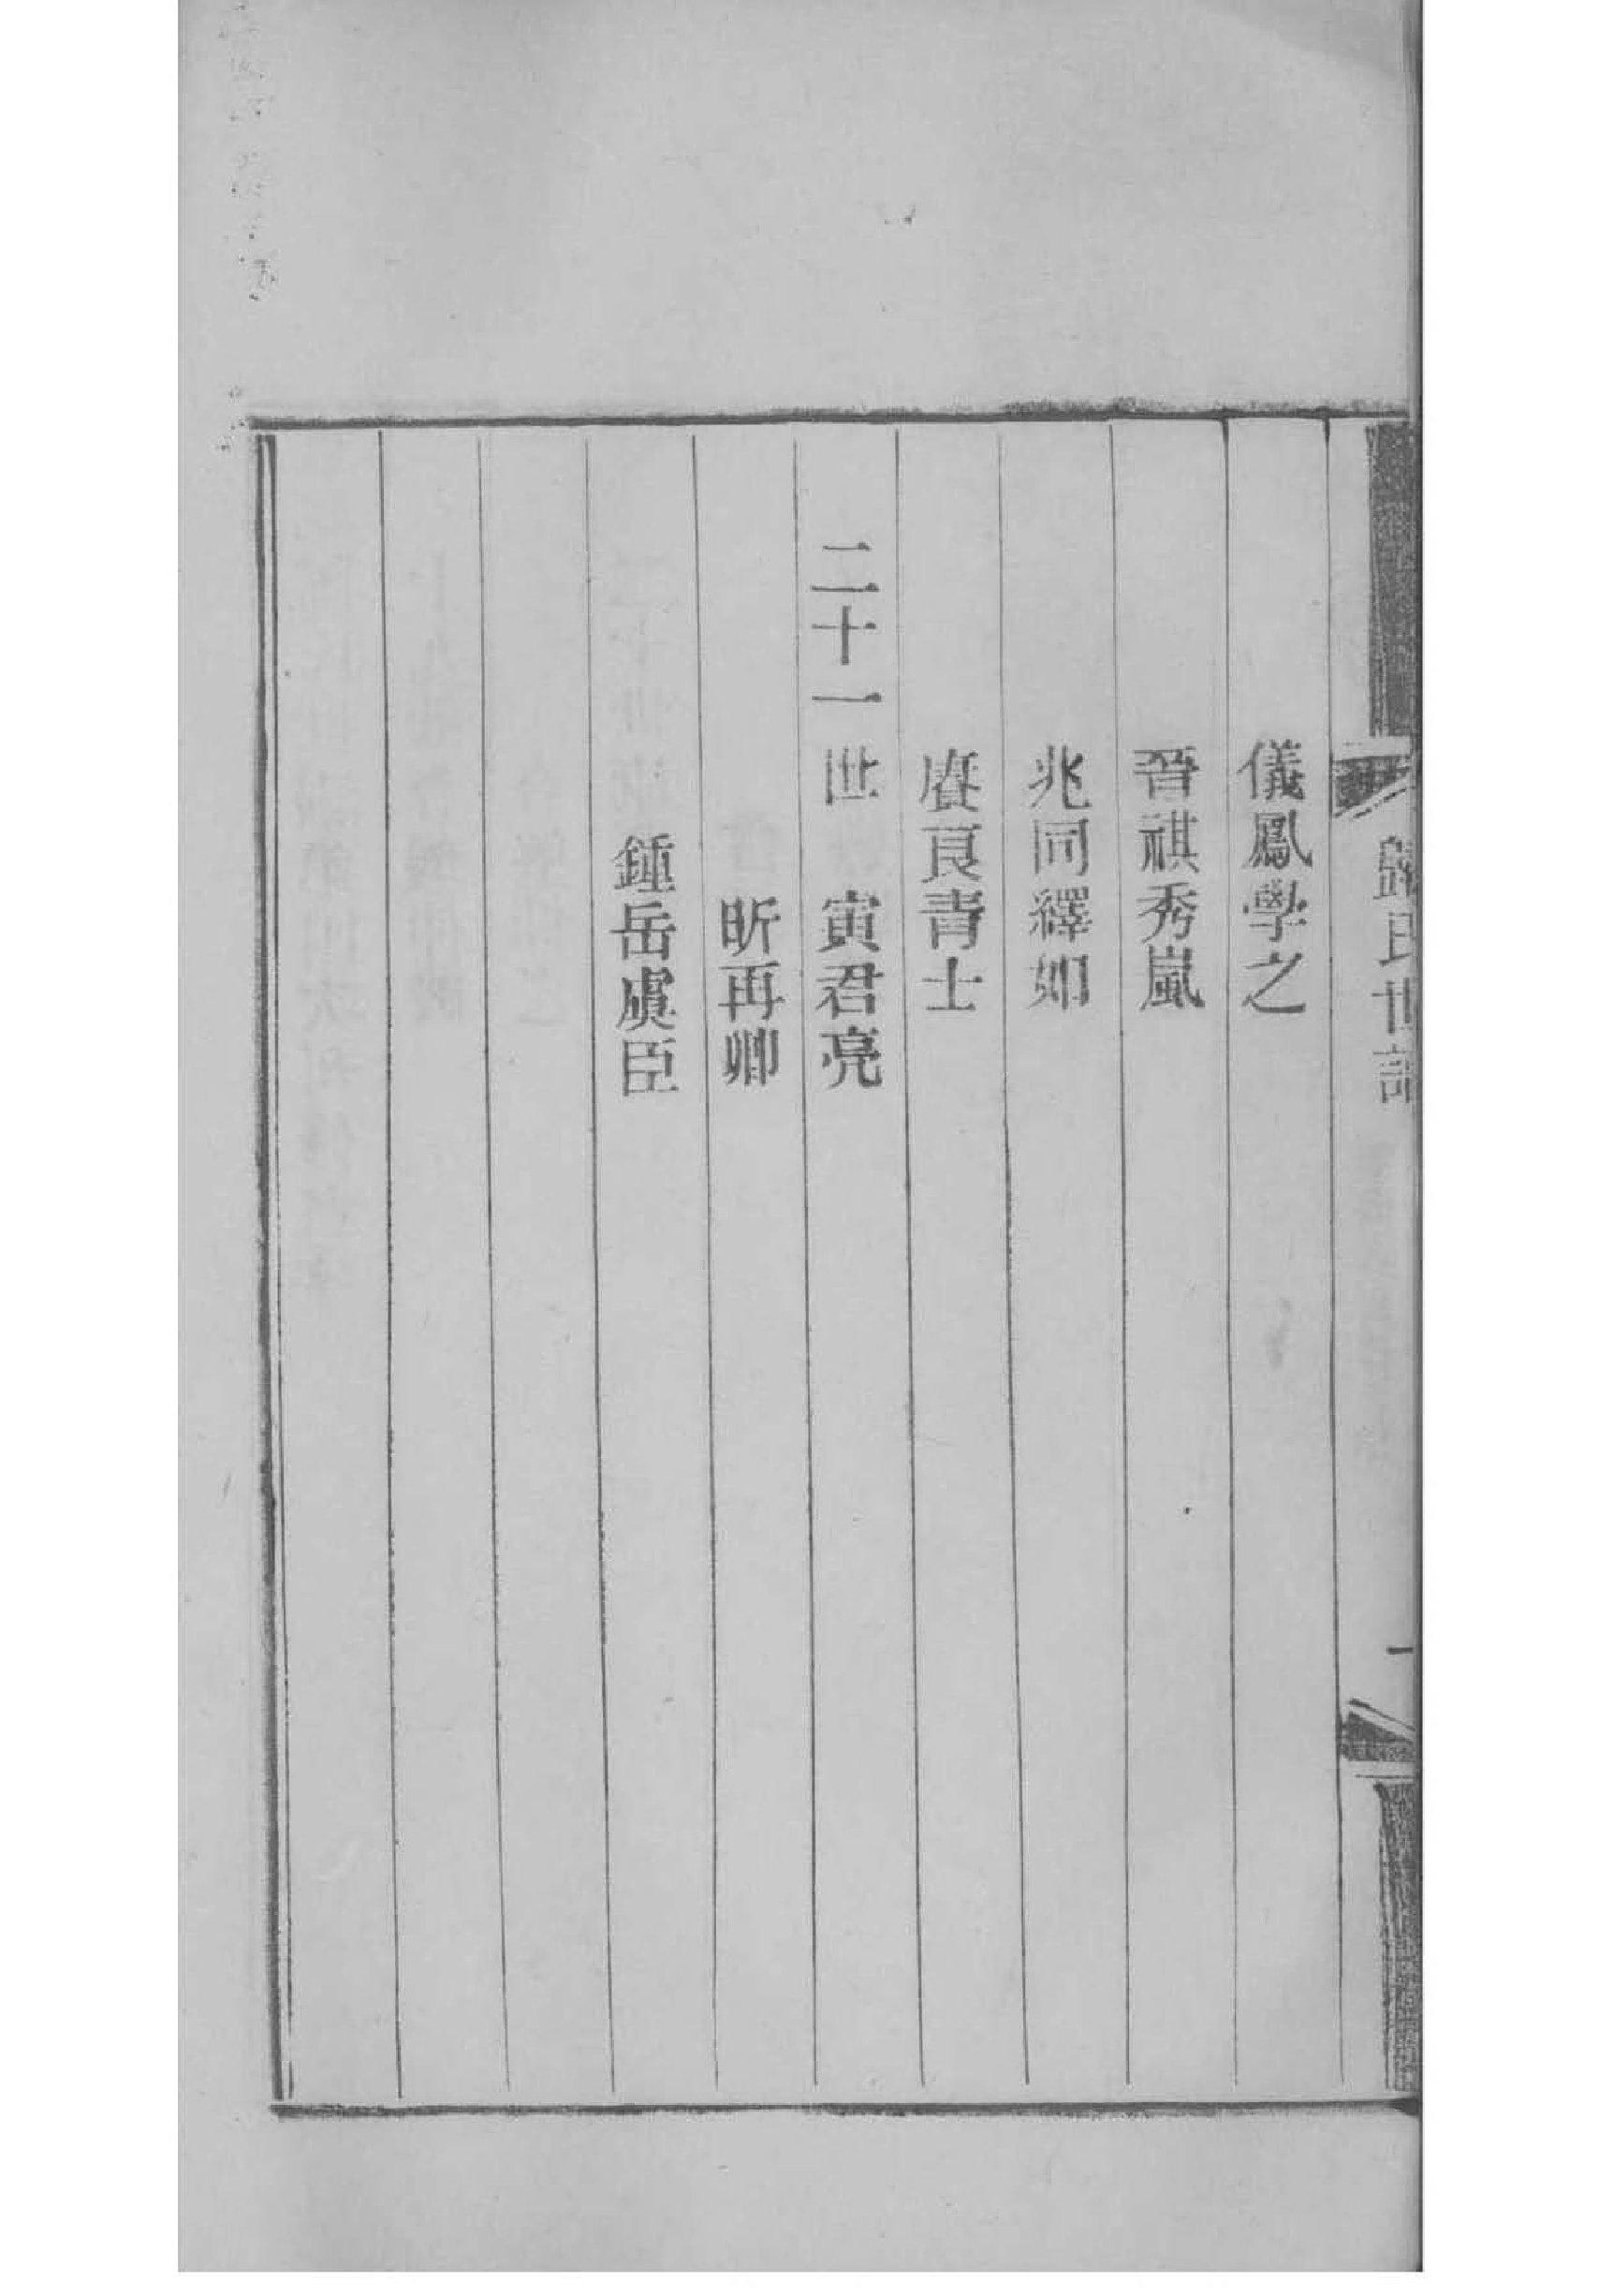 歸氏世譜
一
儀鳳學之
晉祺秀嵐
兆同繹如
賡良青士
二十一世 寅君亮
昕再卿
鍾岳虞臣